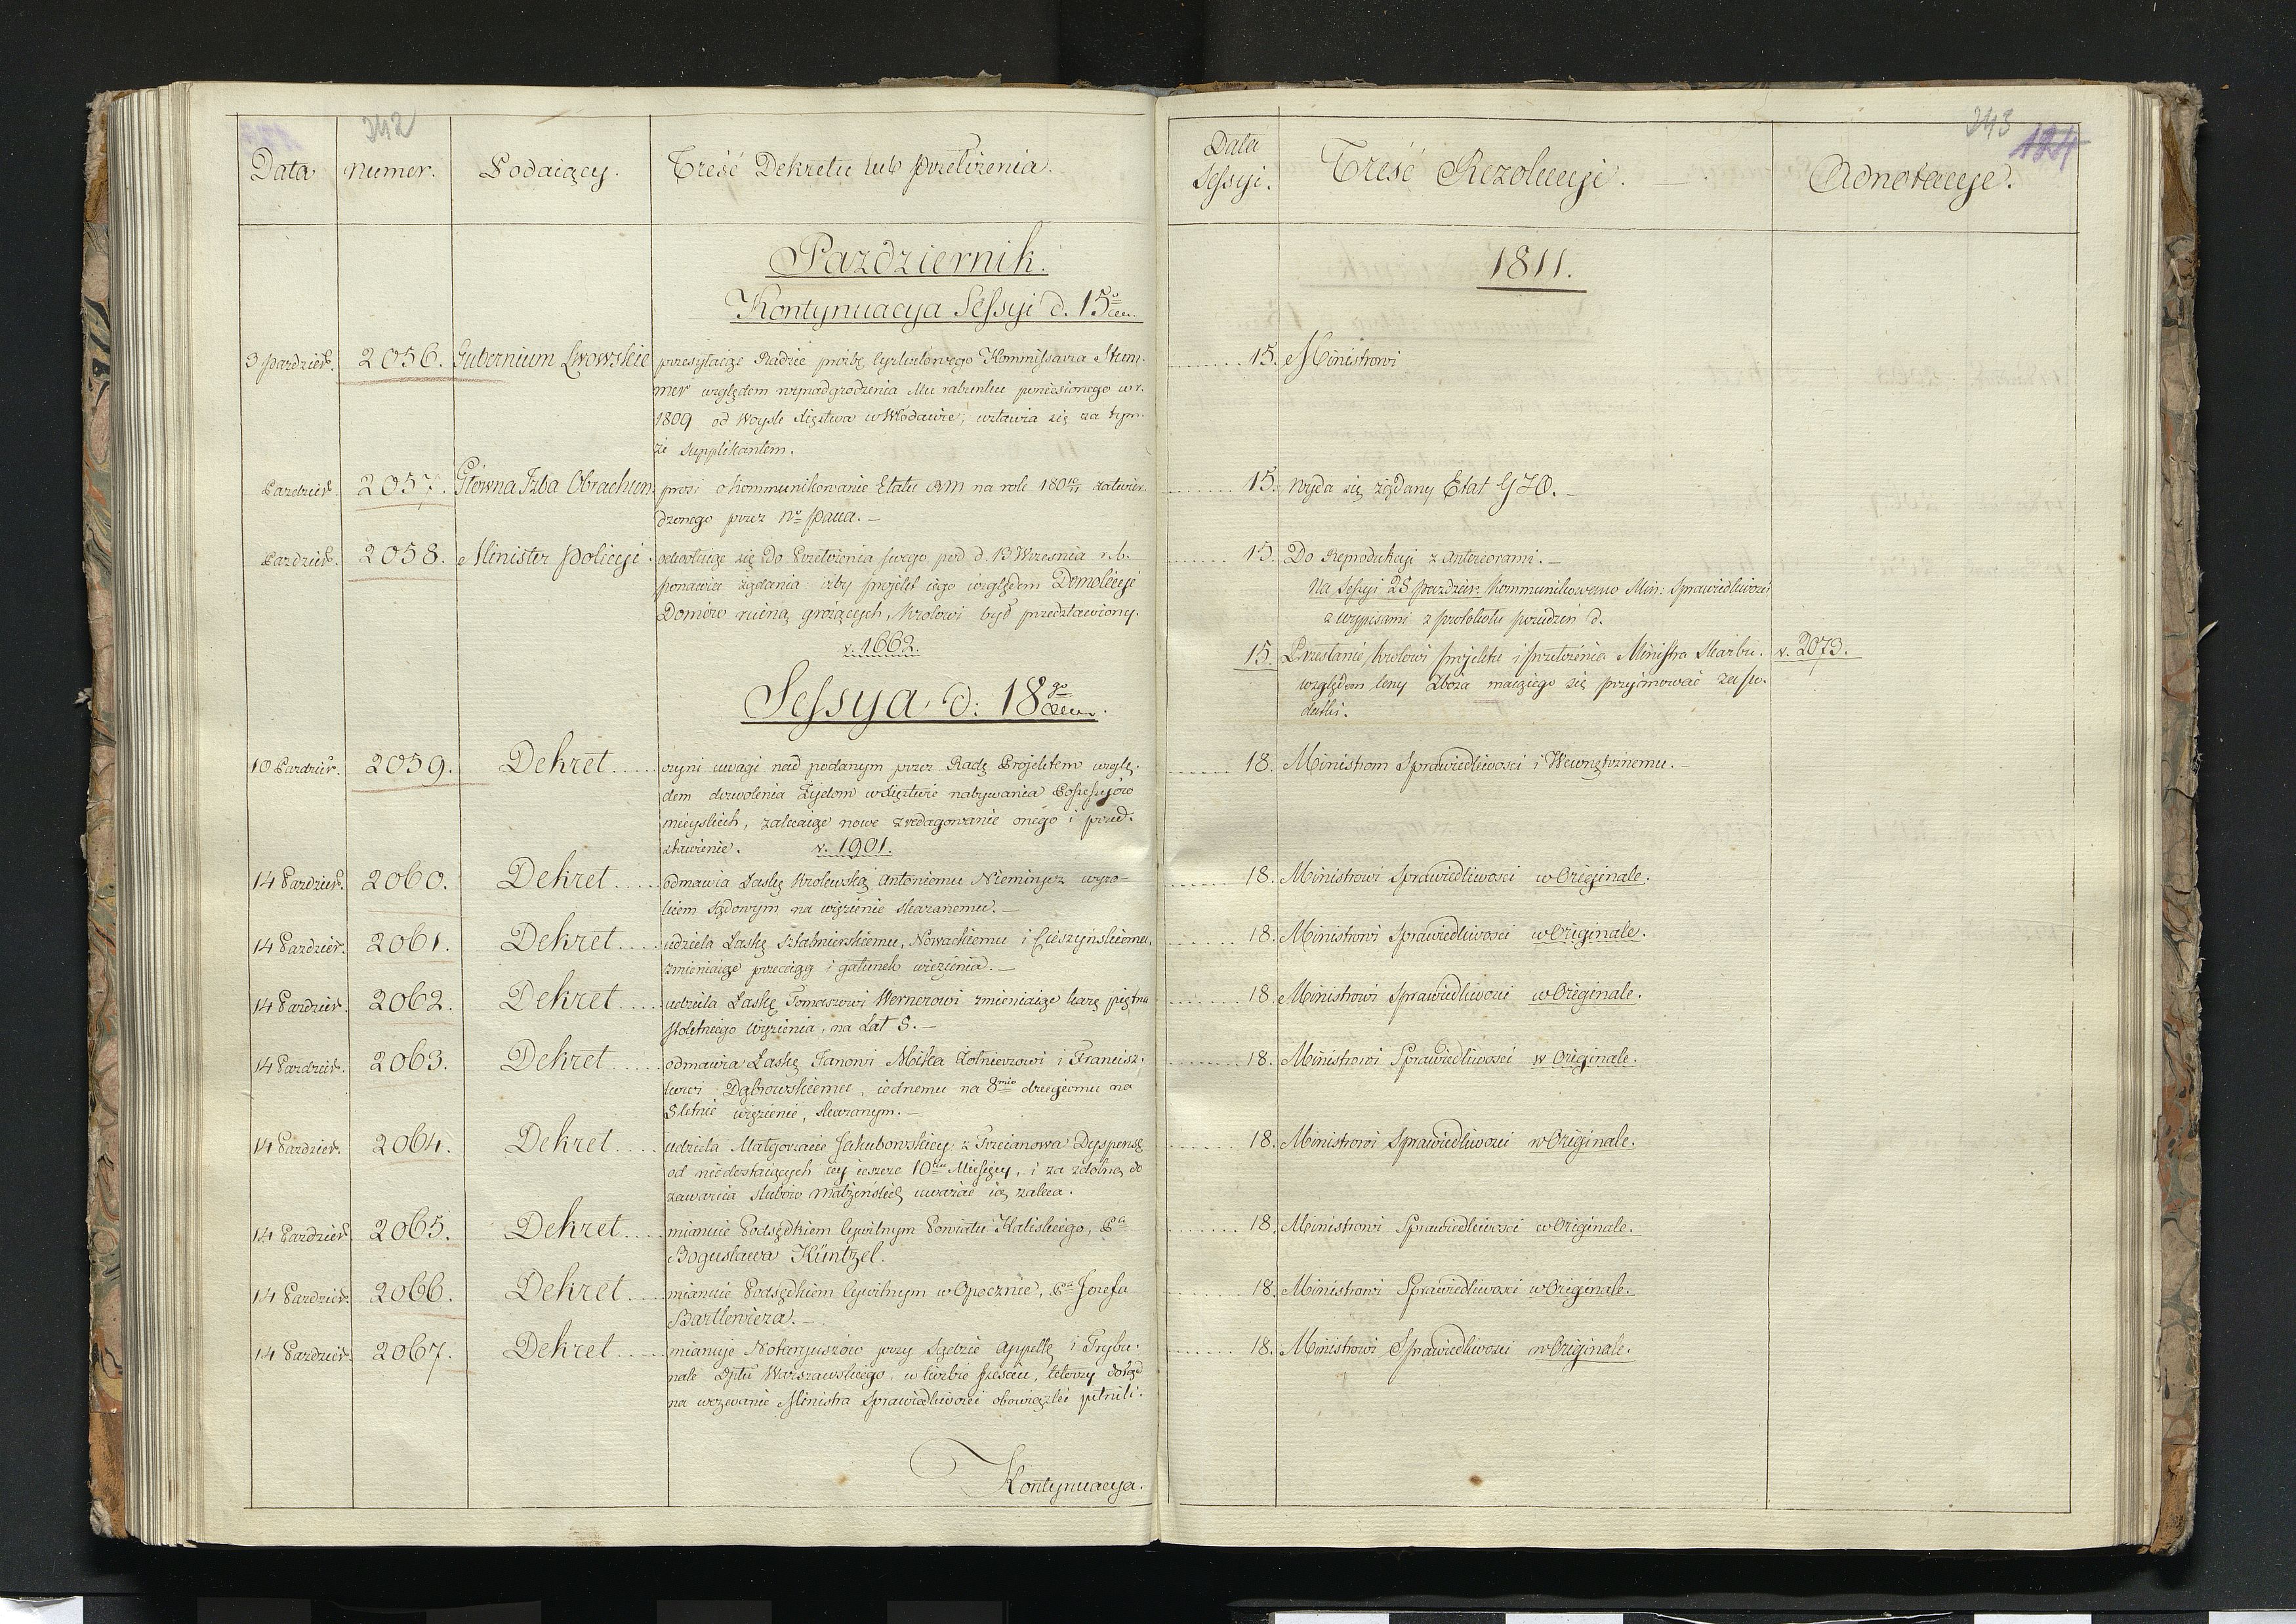 242
Data
Numer.
Podaiący.
Treść Dekretu lub przełożenia.
Pazdziernik.
Kontynuacya Sessyi d. 15
3 Pazdzier.
2056.
Gubernium Lwowskie
przesyłaiąc Radzie proźbę Cyrkułowego Kommissarza
mer względem wynadgrodzenia Mu rabunku poniesionego w r.
1809 od Woysk Xięstwa w Włodawie; wstawia się za tym-
że supplikantem.
Pazdzier.
2057.
Główna Izba Obrachun.
prosi o kommunikowanie Etatu na rok 18010/11 zatwier-
dzonego przez Nº Pana. —
Pazdzier.
2058.
Minister Policyi.
odwołuiąc się do Przełożenia swego pod d. 13 Wrzesnia r. b.
ponawia żądania: iżby projekt iego względem Demolicyi
Domów ruiną grożących, Krolowi był przedstawiony.
v. 1662.
Sessya d: 18 go
10 Pazdzier.
2059.
Dekret
czyni uwagi nad podanym przez Radę Projektem wzglę-
dem dozwolenia Żydom w Xięstwie nabywania Possessyiów
mieyskich, zalecaiąc nowe zredagowanie onego i przed-
stawienie. v. 1901.
14 Pazdzier.
2060.
Dekret
odmawia Łaskę Krolewską Antoniemu Niemirycz wyro-
kiem sądowym na więzienie skazanemu. —
14 Pazdzier.
2061.
Dekret
udziela Łaskę Szkalmierskiemu, Nowackiemu i Cieszyńskiemu,
zmieniaiąc przeciąg i gatunek więzienia. —
14 Pazdzier.
2062.
Dekret
udziela Łaskę Tomaszowi Wernerowi zmieniaiąc karę piętna
stoletniego więzienia, na Lat 5. —
14 Pazdzier.
2063.
Dekret
odmawia Łaskę Janowi Mika Żołnierzowi i Francisz-
kowi Dąbrowskiemu, iednemu na 8mio drugiemu na
5letnie więzienie, skazanym. —
14 Pazdzier.
2064.
Dekret
udziela Małgorzacie Jakubowskiey z Trzcianowa Dyspensę
od niedostaiących iey ieszcze 10ciu Miesięcy, i za zdolną do
zawarcia slubów małżeńskich uważać ią zaleca.
14 Pazdzier.
2065.
Dekret
mianuie Podsędkiem Cywilnym Powiatu Kaliskiego, Pa
Bogusława Küntzel.
14 Pazdzier.
2066.
Dekret
mianuie Podsędkiem Cywilnym w Opocznie, Pa Jozefa
Bartkewicza. —
14 Pazdzier.
2067.
Dekret
mianuje Notaryuszów przy Sądzie Appellę i Trybu-
nale Dptu Warszawskiego, w liczbie sześciu, którzy dotąd
na wezwanie Ministra Sprawiedliwości obowiązki pełnili.
Kontynuacya.
243
124
Data
Sessyi.
Treść Rezolucyi.
Adnotacye.
1811.
15.
Ministrowi
15.
Wyda się żądany Etat GIO. —
15.
Do Reprodukcyi z Anteriorami. —
Na Sessyi 25 Pazdzier. Kommunikowano Min: Sprawiedliwości
z wypisami z protokołu posiedzeń d.
15.
Przesłanie Krolowi projektu i przełożenia Ministra Skarbu.
v. 2073.
względem Ceny Zboża maiącego się przyimować za po-
datki.
18.
Ministrom Sprawiedliwosci i Wewnętrznemu. —
18.
Ministrowi Sprawiedliwosci w Originale.
18.
Ministrowi Sprawiedliwosci w Originale.
18.
Ministrowi Sprawiedliwosci w Originale.
18.
Ministrowi Sprawiedliwosci w Originale.
18.
Ministrowi Sprawiedliwosci w Originale.
18.
Ministrowi Sprawiedliwosci w Originale.
18.
Ministrowi Sprawiedliwosci w Originale.
18.
Ministrowi Sprawiedliwosci w Originale.